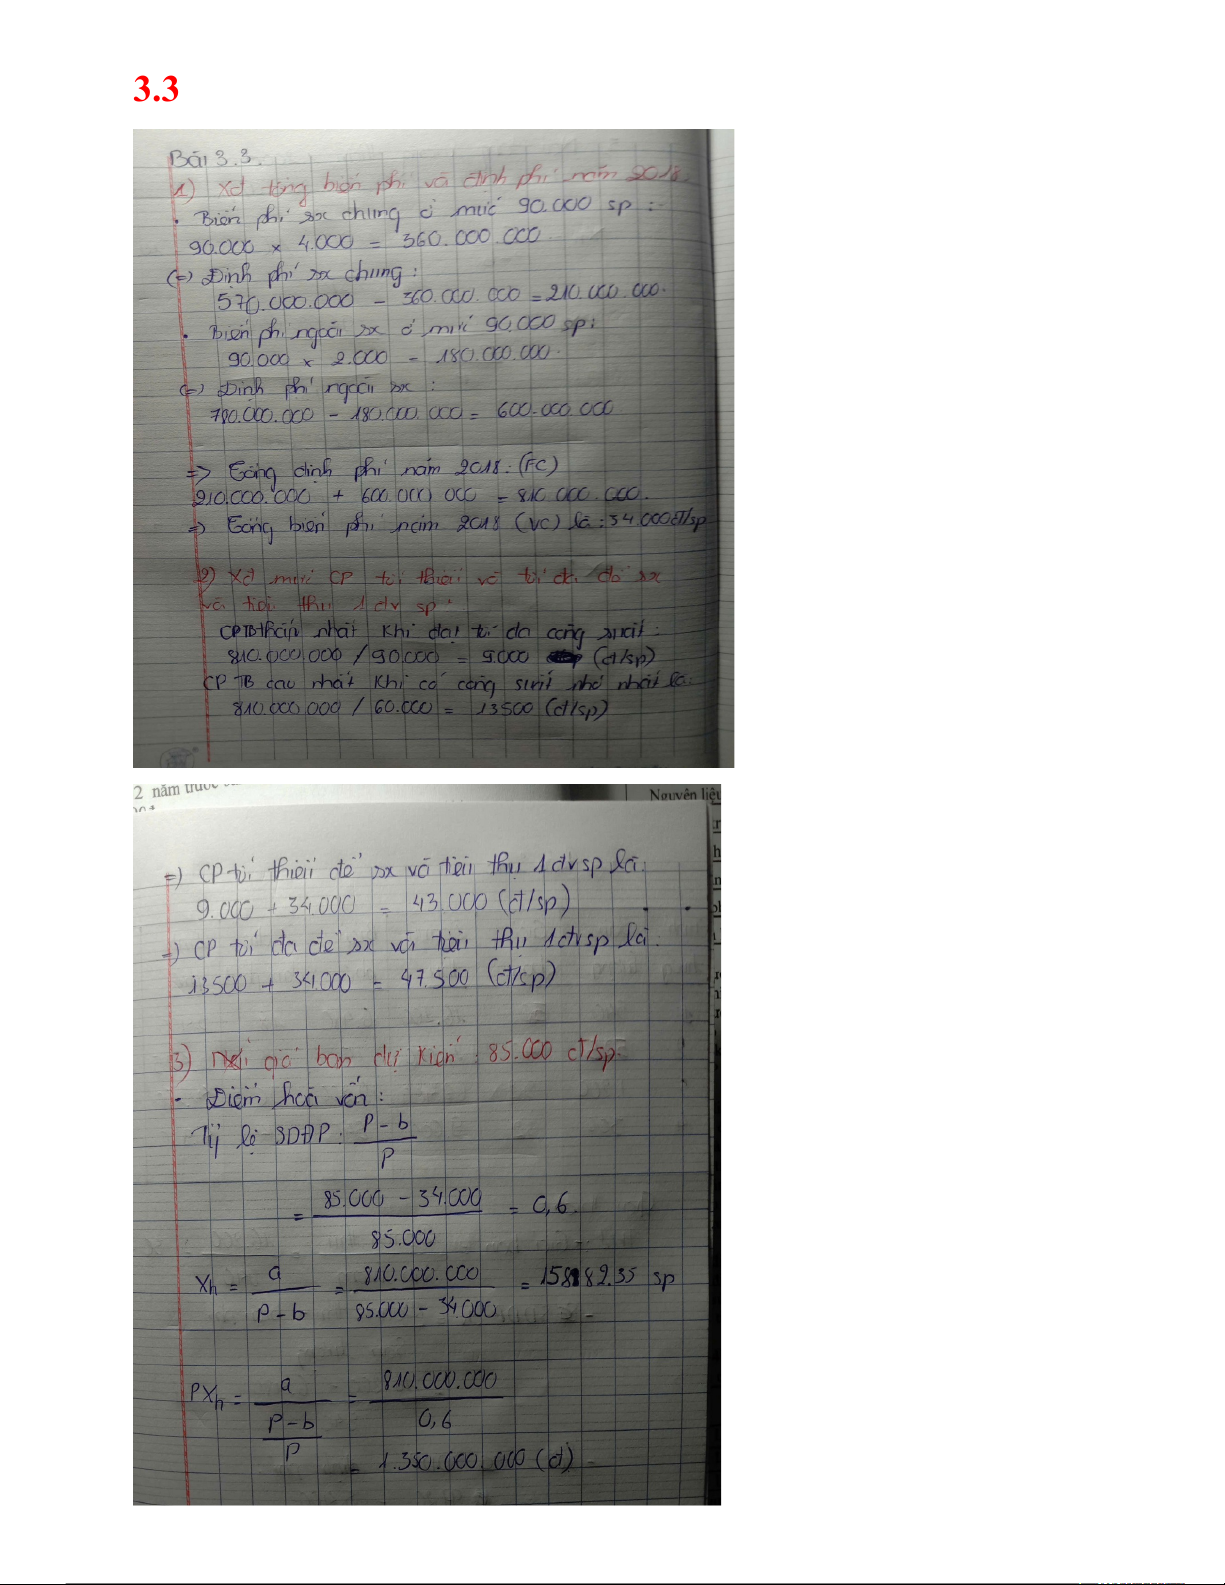 3.3
Bài 3.3.
1) Xđ tổng biến phí và định phí năm 2018.
• Biến phí sx chung ở mức 90.000 sp :
90.000 x 4.000 = 360.000.000
(=) Định phí sx chung :
570.000.000 - 360.000.000 = 210.000.000.
• Biến phí ngoài sx ở mức 90.000 sp :
90.000 x 2.000 = 180.000.000.
(=) Định phí ngoài sx :
780.000.000 - 180.000.000 = 600.000.000
=> Tổng định phí năm 2018 : (FC)
210.000.000 + 600.000.000 = 810.000.000.
=> Tổng biến phí năm 2018 (VC) là : 34.000đ/sp
2) Xđ mức CP tối thiểu và tối đa để sx
và tiêu thụ 1 đv sp :
CPTB thấp nhất khi đạt tối đa công suất :
810.000.000 / 90.000 = 9000 (đ/sp)
CP TB cao nhất khi có công suất nhỏ nhất là:
810.000.000 / 60.000 = 13500 (đ/sp)
2 năm trước
Nguyên liệu
=) CP tối thiểu để sx và tiêu thụ 1 đv sp là:
9.000 + 34.000 = 43.000 (đ/sp)
=) CP tối đa để sx và tiêu thụ 1 đv sp là :
13500 + 34.000 = 47.500 (đ/sp)
3) Nếu giá bán dự kiến 85.000 đ/sp.
- Điểm hoà vốn :
Tỷ lệ SDĐP : P - b
P
= 85.000 - 34.000 = 0,6
85.000
Xh = a = 810.000.000 = 15882.35 sp
P - b 85.000 - 34.000
PXh = a = 810.000.000
P - b 0,6
P
= 1.350.000.000 (đ)